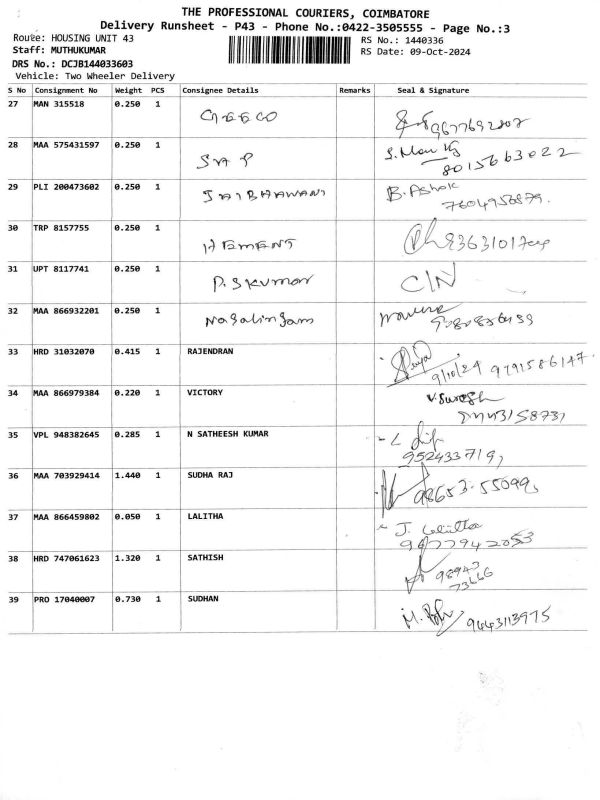 THE PROFESSIONAL COURIERS, COIMBATORE
Delivery Runsheet - P43 - Phone No.:0422-3505555 - Page No.:3
Route: HOUSING UNIT 43 RS No.: 1440336
Staff: MUTHUKUMAR RS Date: 09-Oct-2024
DRS No.: DCJB144033603
Vehicle: Two Wheeler Delivery
S No Consignment No Weight PCS Consignee Details Remarks Seal & Signature
27 MAN 315518 0.250 1
28 MAA 575431597 0.250 1 SAP S. Mani
8015663022
29 PLI 200473602 0.250 1 JAIBHAWANI B. Ashok
7604956879.
30 TRP 8157755 0.250 1 HEMENT
31 UPT 8117741 0.250 1 P.SKumar C/N
32 MAA 866932201 0.250 1 Nagalingam
33 HRD 31032070 0.415 1 RAJENDRAN
9/10/24 9791586147
34 MAA 866979384 0.220 1 VICTORY V. Suresh
35 VPL 948382645 0.285 1 N SATHEESH KUMAR
9524337191
36 MAA 703929414 1.440 1 SUDHA RAJ 98653-55099
37 MAA 866459802 0.050 1 LALITHA J. Lalitha
9677942053
38 HRD 747061623 1.320 1 SATHISH 98943
73666
39 PRO 17040007 0.730 1 SUDHAN 9443113975